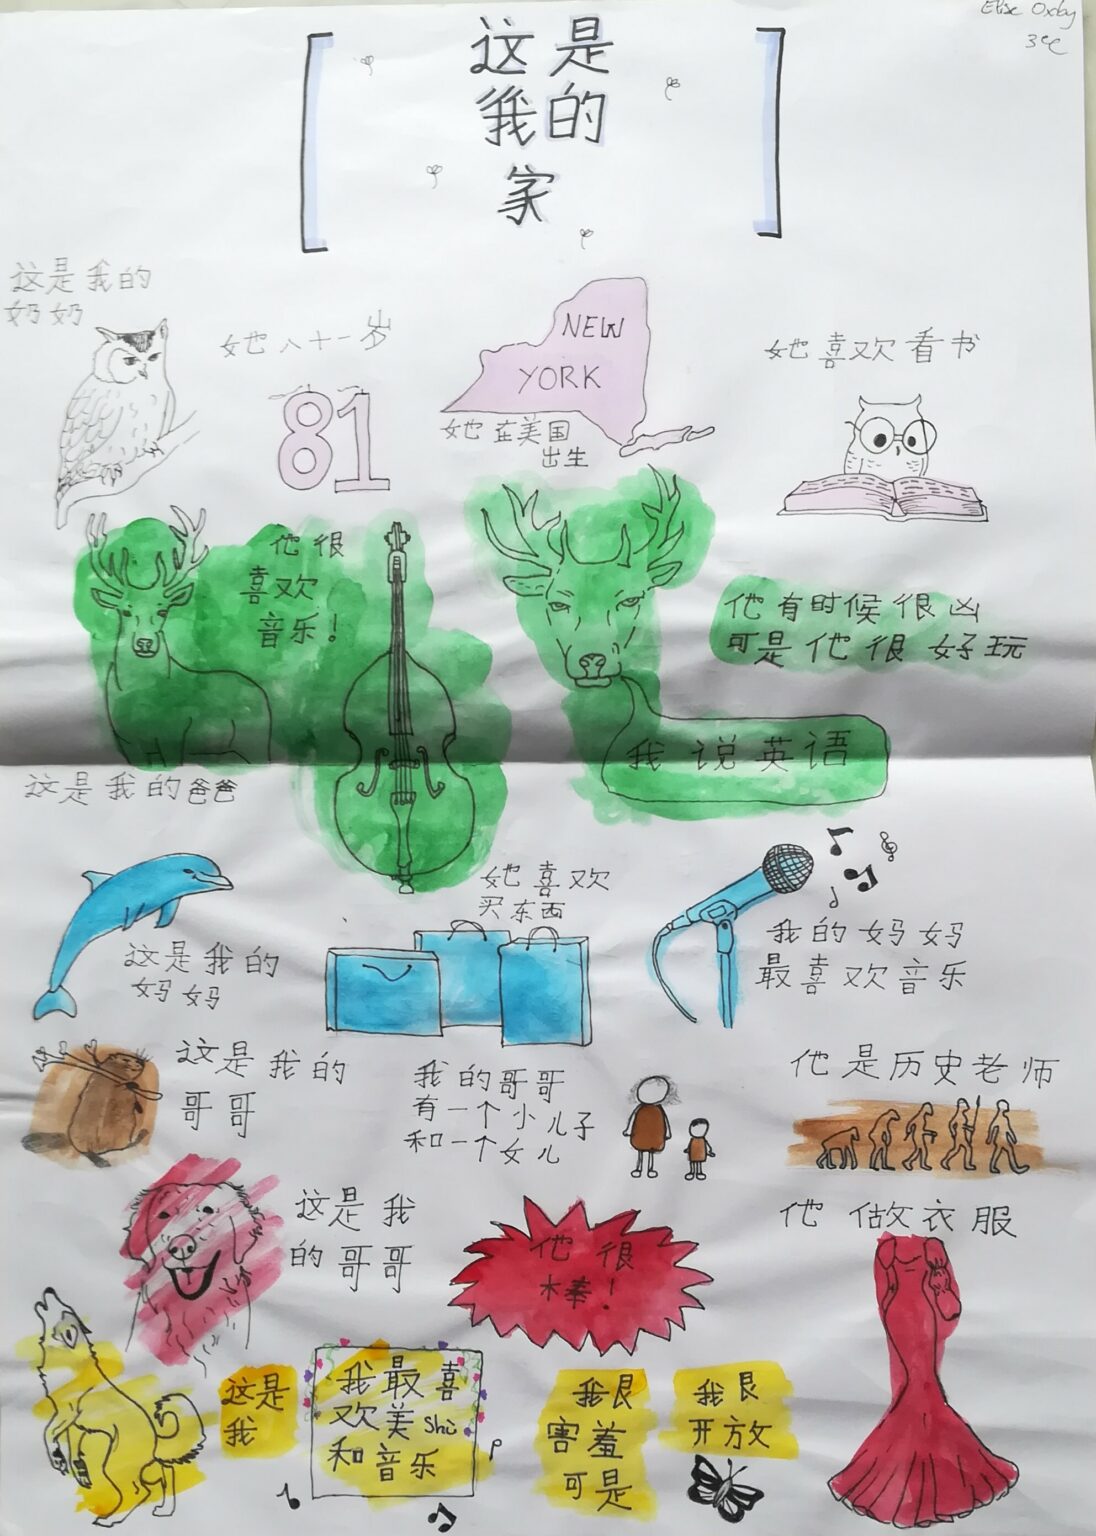 Elise Oxby
3eC
这是
我的
家
这是我的
奶奶
她八十一岁
81
NEW
YORK
她在美国
出生
她喜欢看书
他很
喜欢
音乐！
他有时候很凶
可是他很好玩
我说英语
这是我的爸爸
这是我的
妈妈
她喜欢
买东西
我的妈妈
最喜欢音乐
这是我的
哥哥
我的哥哥
有一个小儿子
和一个女儿
他是历史老师
这是我
的哥哥
他很
棒！
他做衣服
这是
我
我最喜
欢美shù
和音乐
我艮
害羞
可是
我艮
开放